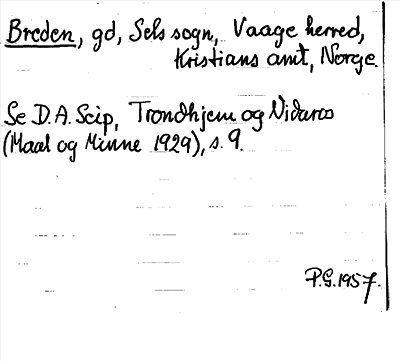 Breden, gd, Sels sogn, Vaage herred,
Kristians amt, Norge.
Se D.A. Seip, Trondhjem og Nidaros
(Maal og Minne 1929), s. 9.
P.G. 1957.